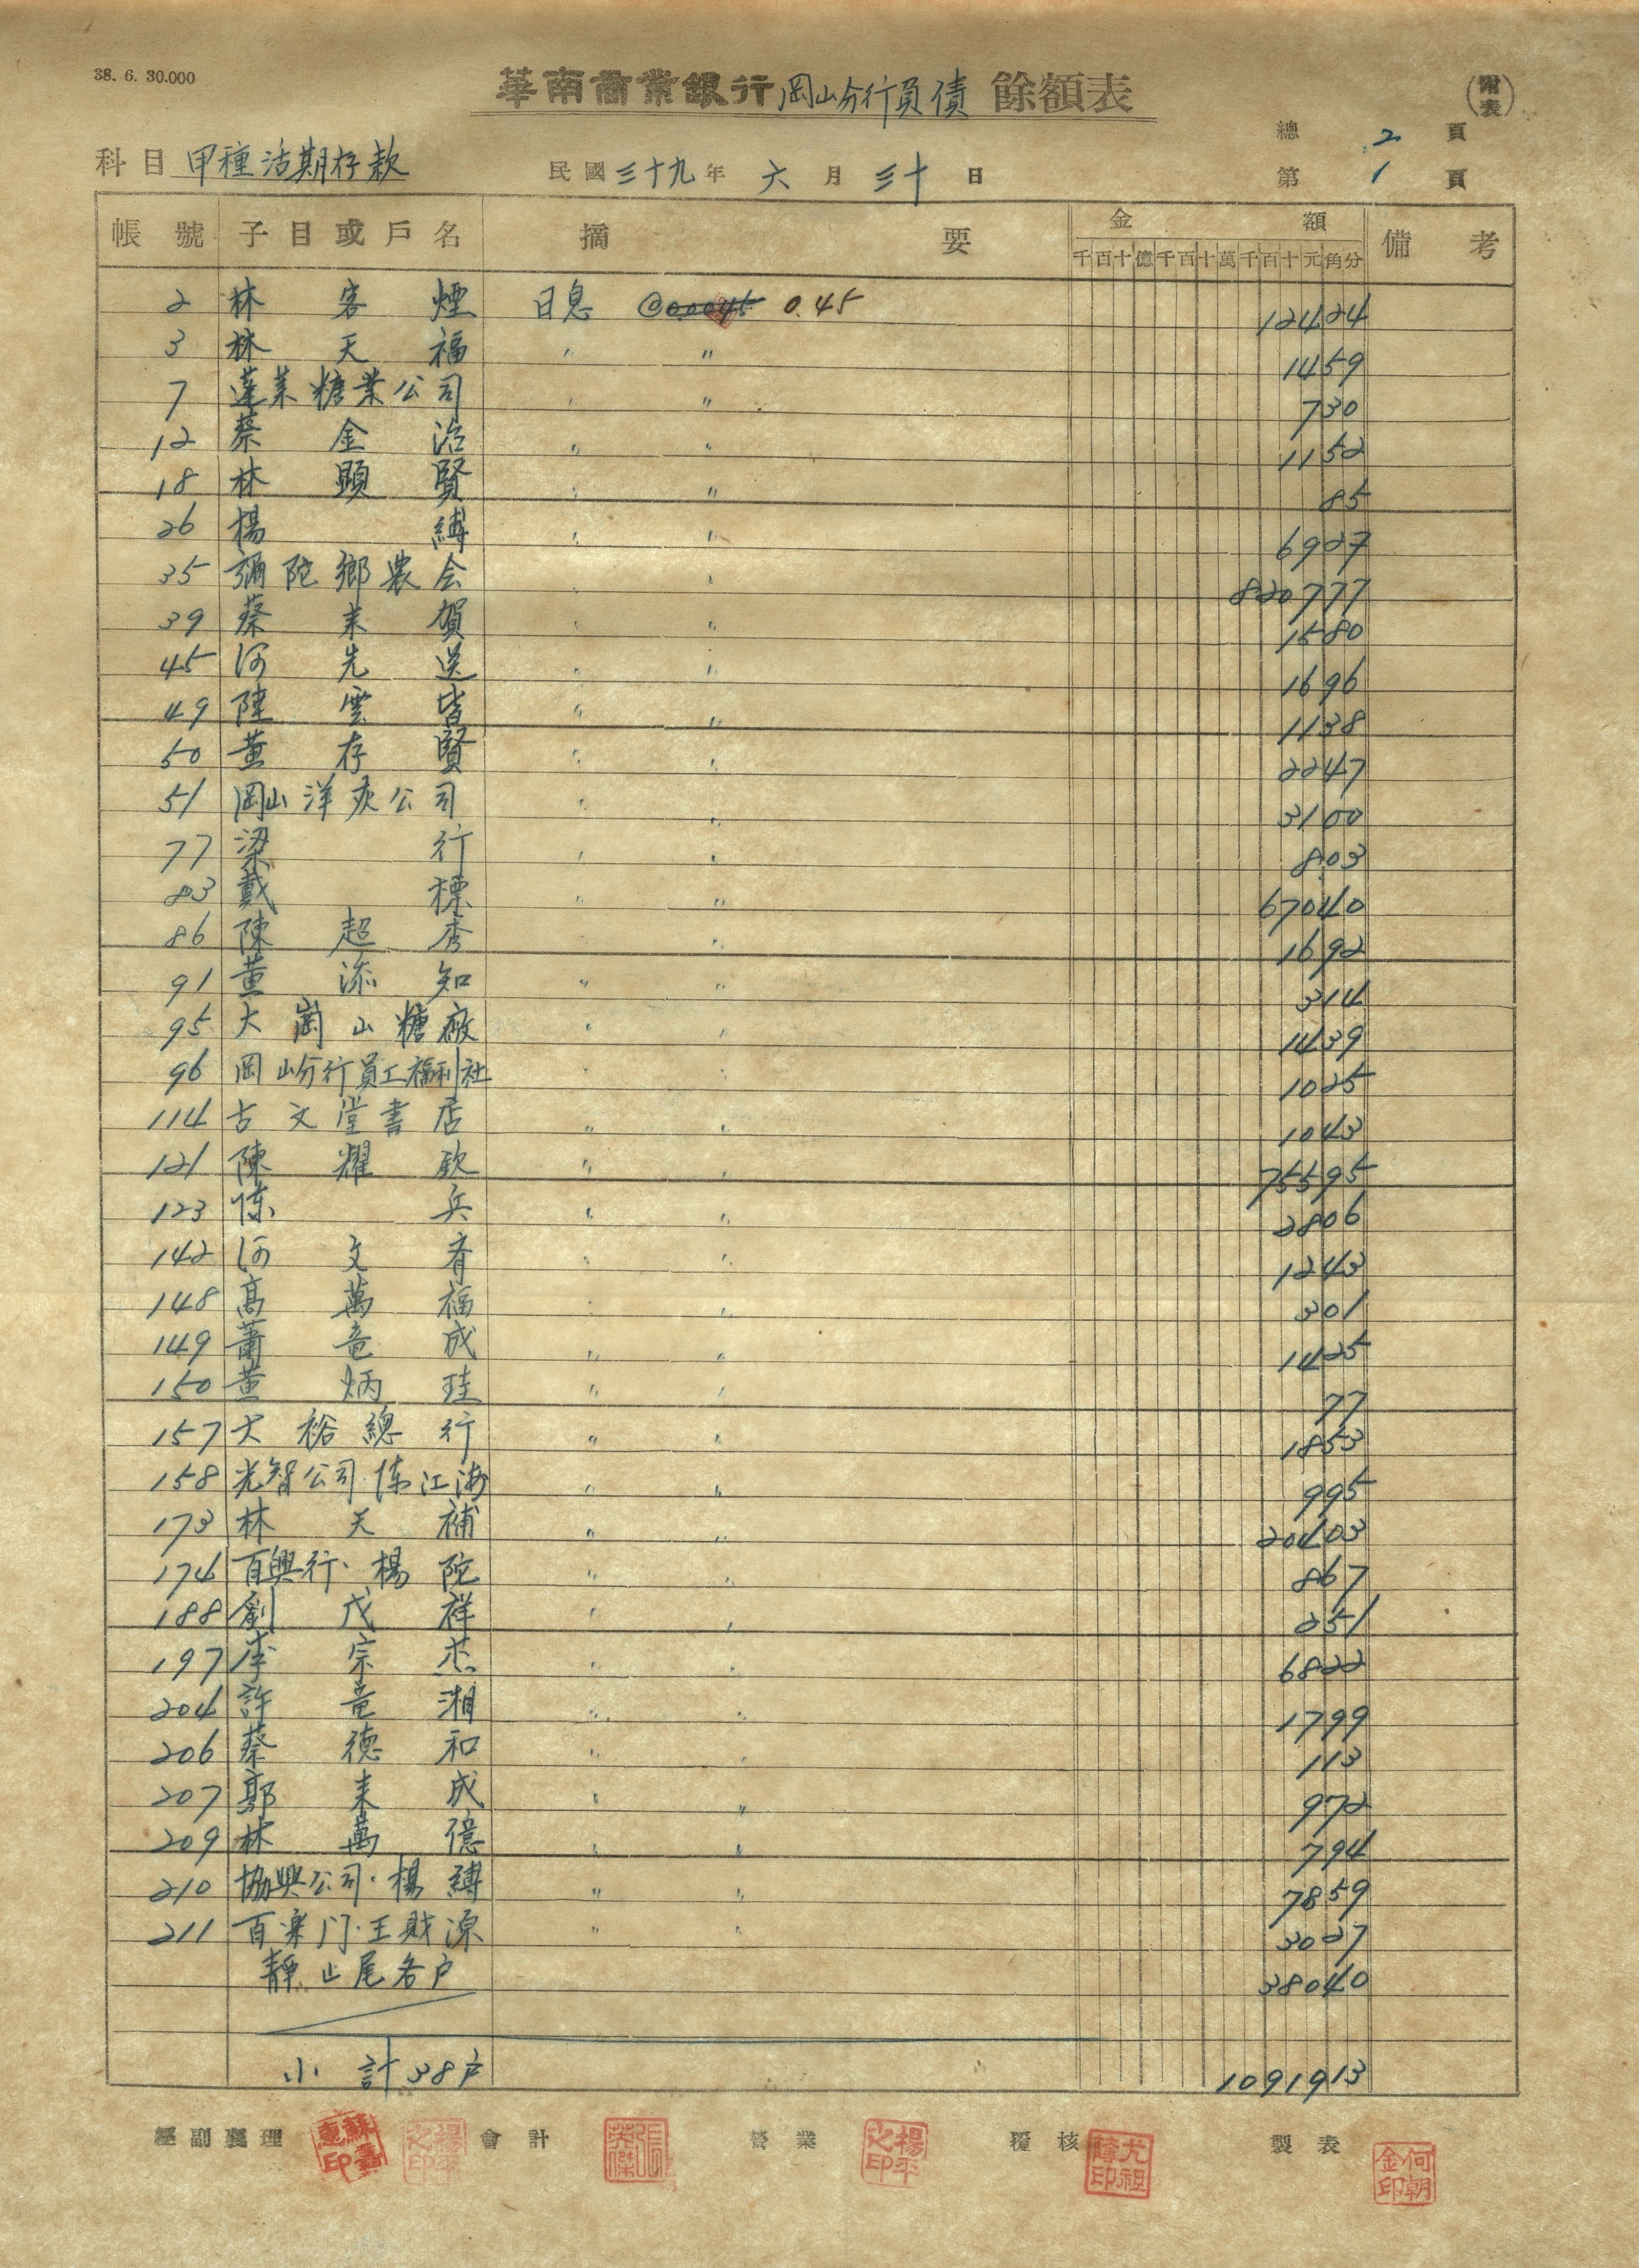 38. 6. 30.000
華南商業銀行岡山分行負債 餘額表
(附表)
總 2 頁
科目 甲種活期存款 民國 三十九 年 六 月 三十 日
第 1 頁
帳號 子目或戶名 摘要 金額 備考
千百十億千百十萬千百十元角分
2 林客煙 日息 @0.0045 0.45 12424
3 林天福 〃 〃 1459
7 蓬萊糖業公司 〃 〃 730
12 蔡金治 〃 〃 1152
18 林顕賢 〃 〃 85
26 楊縛 〃 〃 6927
35 彌陀鄉農会 〃 820777
39 蔡来賀 〃 〃 1580
45 河先送 〃 〃 1696
49 陸雲皆 〃 〃 1138
50 黄存賢 〃 〃 2247
51 岡山洋灰公司 〃 〃 3100
77 梁行 〃 〃 803
83 戴標 〃 〃 67040
86 陳超秀 〃 1692
91 黄添知 〃 〃 314
95 大崗山糖廠 〃 〃 1439
96 岡山分行員工福利社 〃 〃 1025
114 古文堂書店 〃 〃 1043
121 陳耀欽 〃 〃 75595
123 陈兵 〃 〃 2806
142 河文有 〃 〃 1243
148 高萬福 〃 〃 301
149 蕭竜成 〃 〃 1425
150 黄炳珪 〃 〃 77
157 大裕總行 〃 〃 1853
158 光智公司·陈江海 〃 〃 995
173 林天補 〃 〃 20403
174 百興行·楊陀 〃 〃 867
188 劉戊祥 〃 〃 251
197 李宗杰 〃 〃 6822
204 許竜湘 〃 〃 1799
206 蔡德和 〃 〃 113
207 郭来成 〃 〃 972
209 林萬億 〃 〃 794
210 協興公司·楊縛 〃 〃 7859
211 百楽门·王財源 〃 〃 3027
靜止尾各户 38040
小計 38户 1091913
經副襄理 會計 營業 覆核 製表
楊平之印 張英傑 楊平之印 尤祖蔭印 何朝金印